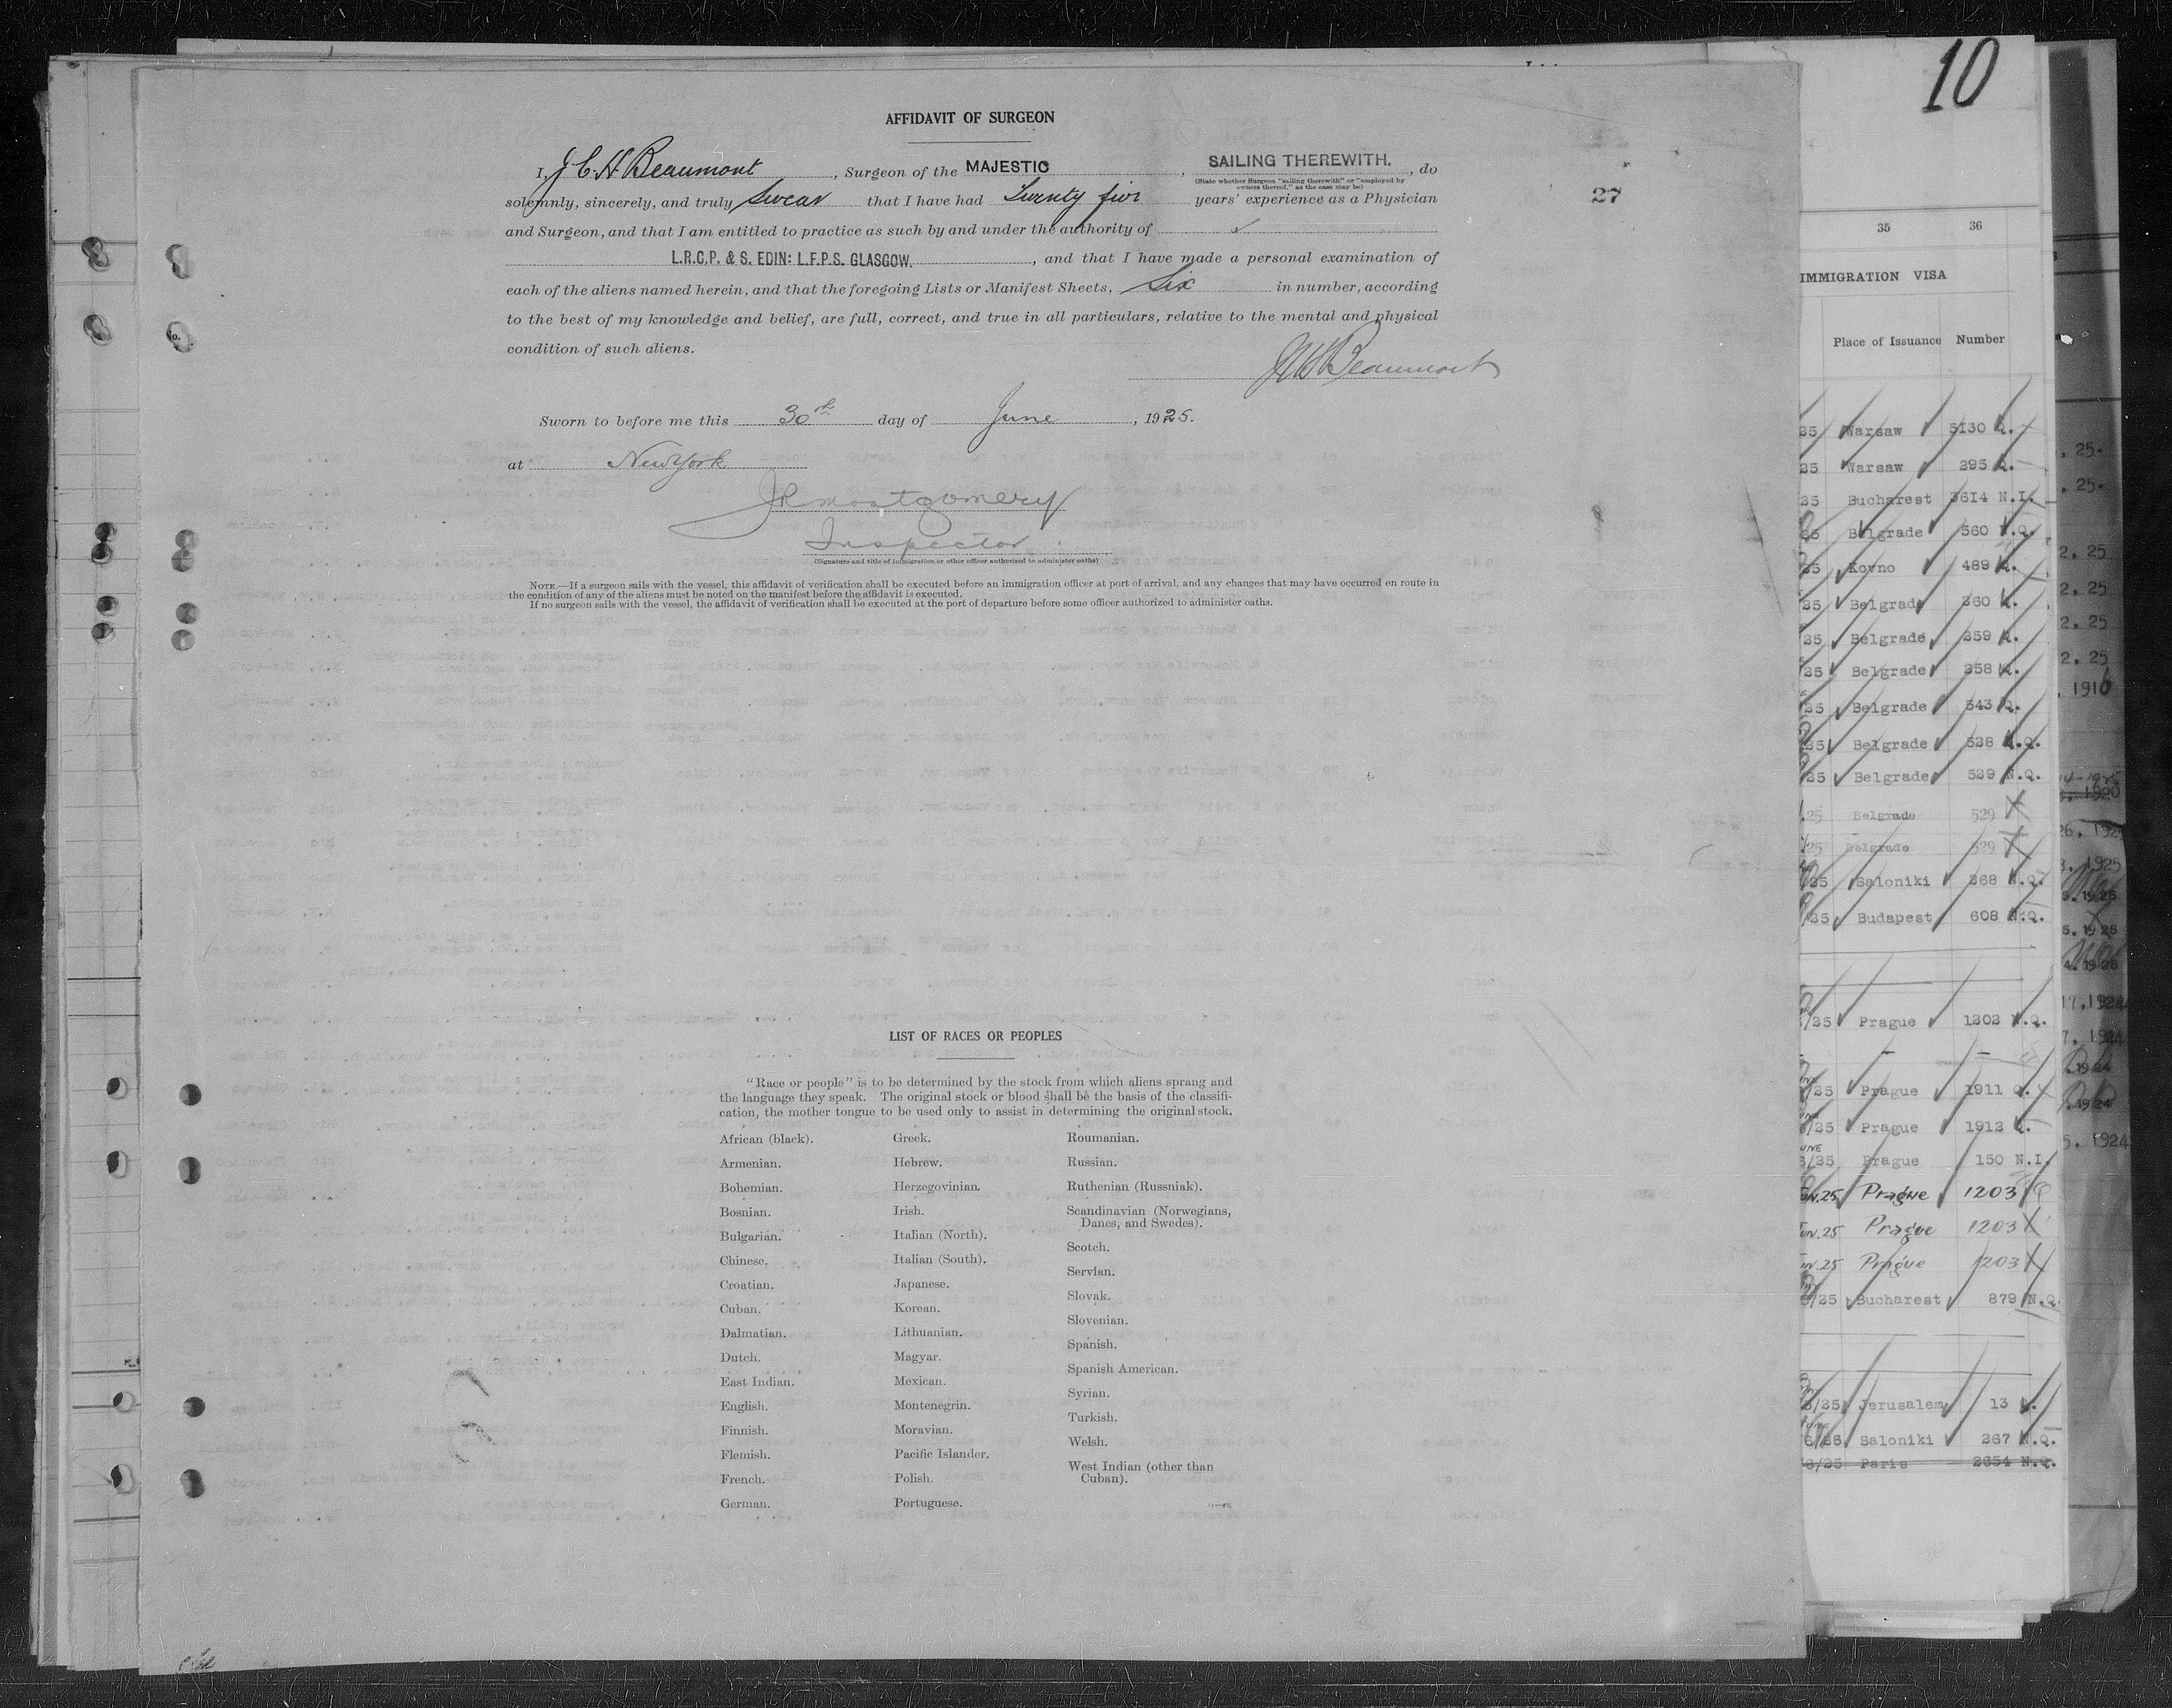 10
AFFIDAVIT OF SURGEON
I, J C H Beaumont, Surgeon of the MAJESTIC, SAILING THEREWITH., do
(State whether Surgeon "sailing therewith" or "employed by
owners thereof," as the case may be)
27
solemnly, sincerely, and truly swear that I have had Twenty five years' experience as a Physician
and Surgeon, and that I am entitled to practice as such by and under the authority of
L.R.C.P. & S. EDIN: L.F.P.S. GLASGOW., and that I have made a personal examination of
each of the aliens named herein, and that the foregoing Lists or Manifest Sheets, Six in number, according
to the best of my knowledge and belief, are full, correct, and true in all particulars, relative to the mental and physical
condition of such aliens.
JCH Beaumont
Sworn to before me this 30th day of June, 1925.
at New York
JR Montgomery
Inspector.
(Signature and title of immigration or other officer authorized to administer oaths)
NOTE.—If a surgeon sails with the vessel, this affidavit of verification shall be executed before an immigration officer at port of arrival, and any changes that may have occurred en route in
the condition of any of the aliens must be noted on the manifest before the affidavit is executed.
If no surgeon sails with the vessel, the affidavit of verification shall be executed at the port of departure before some officer authorized to administer oaths.
LIST OF RACES OR PEOPLES
"Race or people" is to be determined by the stock from which aliens sprang and
the language they speak. The original stock or blood shall be the basis of the classifi-
cation, the mother tongue to be used only to assist in determining the original stock.
African (black).
Armenian.
Bohemian.
Bosnian.
Bulgarian.
Chinese.
Croatian.
Cuban.
Dalmatian.
Dutch.
East Indian.
English.
Finnish.
Flemish.
French.
German.
Greek.
Hebrew.
Herzegovinian.
Irish.
Italian (North).
Italian (South).
Japanese.
Korean.
Lithuanian.
Magyar.
Mexican.
Montenegrin.
Moravian.
Pacific Islander.
Polish.
Portuguese.
Roumanian.
Russian.
Ruthenian (Russniak).
Scandinavian (Norwegians,
Danes, and Swedes).
Scotch.
Servian.
Slovak.
Slovenian.
Spanish.
Spanish American.
Syrian.
Turkish.
Welsh.
West Indian (other than
Cuban).
35 36
IMMIGRATION VISA
Place of Issuance Number
25 Warsaw 5130 Q.
25 Warsaw 395 Q.
25 Bucharest 3614 N.I.
25 Belgrade 560 N.Q.
25 Kovno 489 Q.
25 Belgrade 360 Q.
25 Belgrade 359 Q.
25 Belgrade 358 Q.
25 Belgrade 543 Q.
25 Belgrade 528 N.Q.
25 Belgrade 529 N.Q.
25 Belgrade 529
25 Belgrade 529
25 Saloniki 268 N.Q.
25 Budapest 608 N.Q.
/25 Prague 1202 N.Q.
/25 Prague 1911 Q.
/25 Prague 1912 Q.
/25 Prague 150 N.I.
25 Prague 1203
25 Prague 1203
25 Prague 1203
/25 Bucharest 879 N.Q.
/25 Jerusalem 13
/25 Saloniki 267 N.Q.
/25 Paris 2654 N.Q.